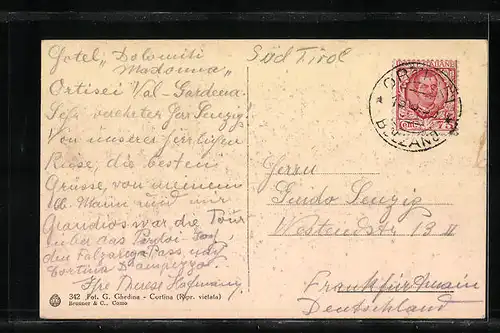 Hotel "Dolomiti
Madonna"
Ortisei Val Gardena.
Sehr verehrter Herr Senzig!
Von unserer herrlichen
Reise, die besten
Grüsse, von meinem
lb. Mann und mir
Grandios war die Tour
über das Pordoi-Joch
den Falzarego Pass, nach
Cortina D'Ampezzo.
Ihre Therese Hofmann
342 Fot. G. Ghedina - Cortina (Ripr. vietata)
Brunner & C., Como
Süd Tirol
ORTISEI
BOLZANO
75
Herrn
Guido Senzig
Westendstr 13 II
Frankfurt Main
Deutschland